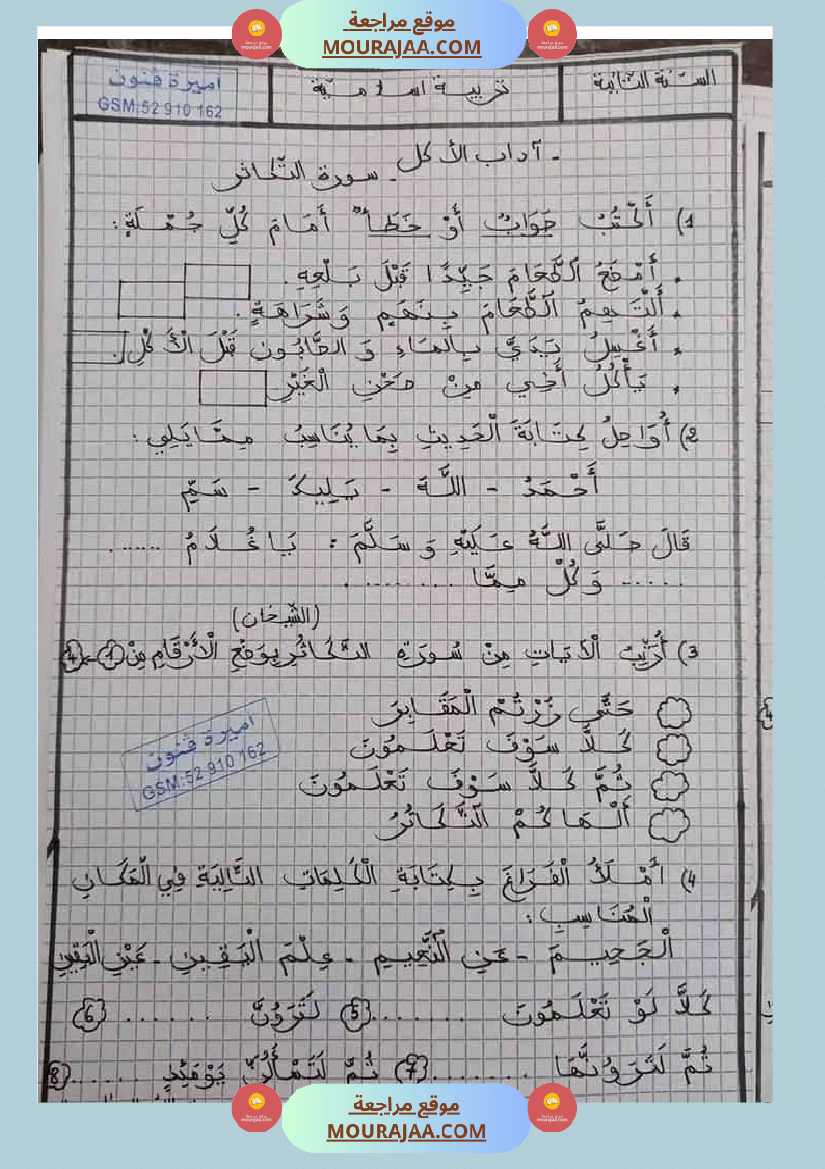 موقع مراجعة
MOURAJAA.COM
السنة الثانية
تربية اسلاميّة
اميرة فنون
GSM:52 910 162
- آداب الأكل
- سورة التكاثر
1) أَكْتُبُ صَوَابٌ أَوْ خَطَأٌ أَمَامَ كُلِّ جُمْلَةٍ:
. أَمْضَغُ الطَّعَامَ جَيِّدًا قَبْلَ بَلْعِهِ.
. أَلْتَهِمُ الطَّعَامَ بِنَهَمٍ وَشَرَاهَةٍ.
. أَغْسِلُ يَدَيَّ بِالمَاءِ وَ الصَّابُونِ قَبْلَ الْأَكْلِ.
. يَأْكُلُ أَخِي مِنْ صَحْنِ الْغَيْرِ
2) أُوَاصِلُ كِتَابَةَ الْحَدِيثِ بِمَا يُنَاسِبُ مِمَّا يَلِي:
أَحْمَدُ - اللَّهَ - يَلِيكَ - سَمِّ
قَالَ صَلَّى اللَّهُ عَلَيْهِ وَ سَلَّمَ : يَا غُلَامُ .......
...... وَكُلْ مِمَّا ......... .
(الشيخان)
3) أُرَتِّبُ الْآيَاتِ مِنْ سُورَةِ التَّكَاثُرِ بِوَضْعِ الْأَرْقَامِ مِنْ 1 - 4
حَتَّى زُرْتُمُ الْمَقَابِرَ
كَلَّا سَوْفَ تَعْلَمُونَ
ثُمَّ كَلَّا سَوْفَ تَعْلَمُونَ
أَلْهَاكُمُ التَّكَاثُرُ
اميرة فنون
GSM:52 910 162
4) أَمْلَأُ الْفَرَاغَ بِكِتَابَةِ الْكَلِمَاتِ التَّالِيَةِ فِي الْمَكَانِ
الْمُنَاسِبِ:
الْجَحِيمَ - عَنِ النَّعِيمِ - عِلْمَ الْيَقِينِ - عَيْنَ الْيَقِينِ
كَلَّا لَوْ تَعْلَمُونَ ........ (5) لَتَرَوُنَّ ....... (6)
ثُمَّ لَتَرَوُنَّهَا ........ (7) ثُمَّ لَتُسْأَلُنَّ يَوْمَئِذٍ ....... (8)
موقع مراجعة
MOURAJAA.COM